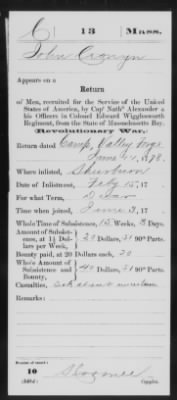 C 13 Mass.
John
Appears on a
Return
of Men, recruited for the Service of the United
States of America, by Capt Nathl Alexander &
his Officers in Colonel Edward Wigglesworth
Regiment, from the State of Massachusetts Bay.
(Revolutionary War.)
Return dated Camp, Valley Forge
June 1778.
Where inlisted,
Date of Inlistment, Feby 15, 17
For what Term,
Time when joined, June 3, 17
Whole Time of Subsistence, 15 Weeks, 3 Days.
Amount of Subsist-
ence, at 1⅓ Dol-
lars per Week, 20 Dollars, 90ths Part.
Bounty paid, at 20 Dollars each, 20
Whole Am't of
Subsistence and
Bounty, 40 Dollars, 90ths Part.
Casualties,
Remarks:
10
(548c) Copyist.